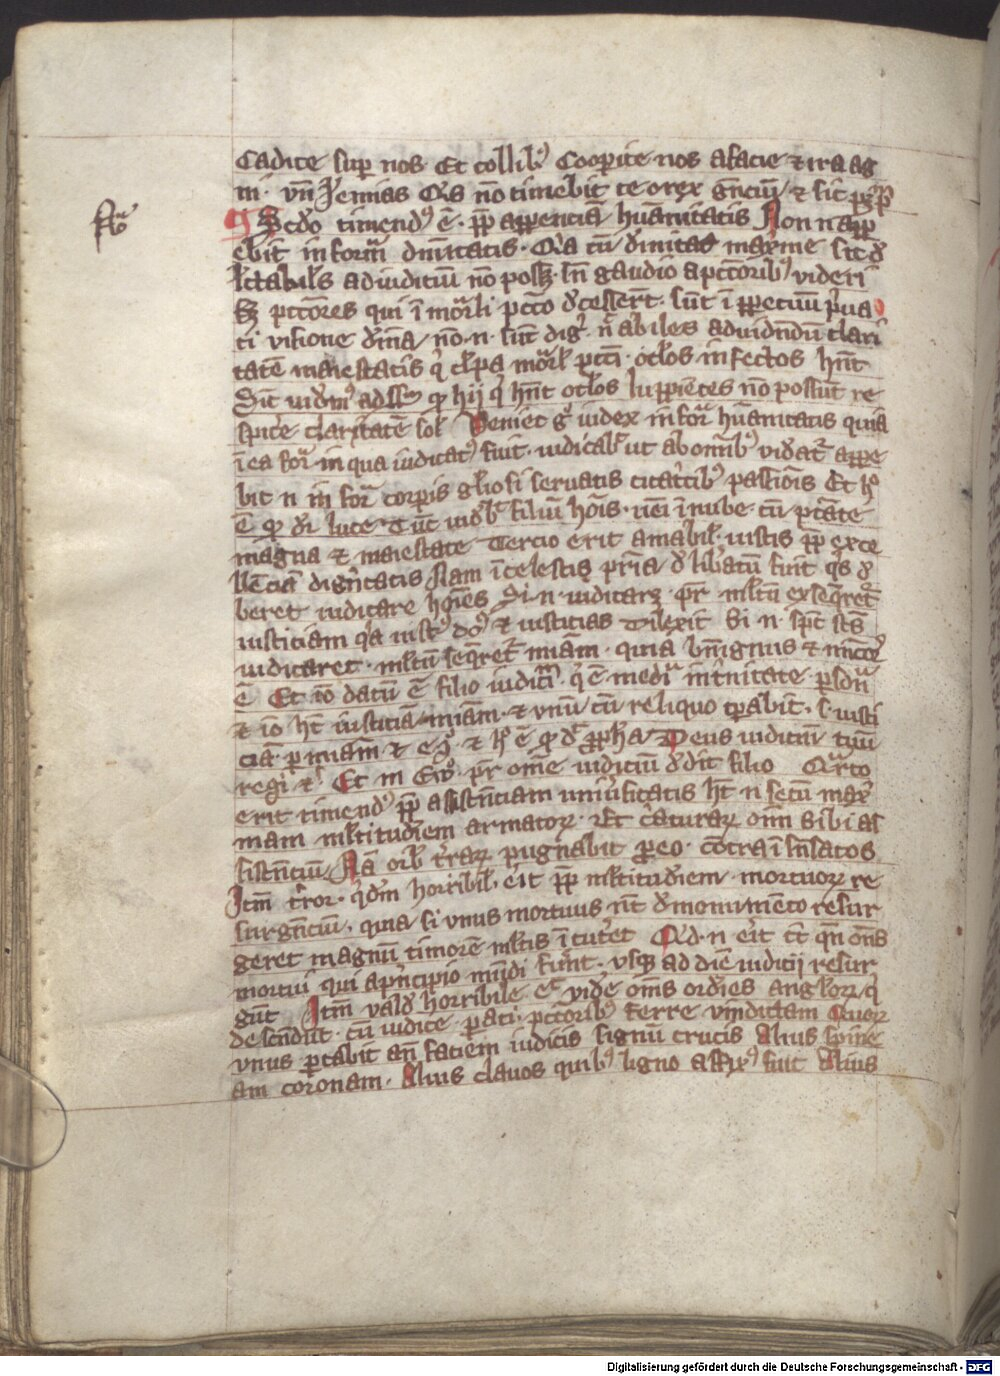 Cadite sup nos· Et collib⁹ Cooperite nos a facie ⁊ ira ag
ni· vn̄ Jeremias Q̇s nō timebit te o rex gēciū ⁊ sic
Scd̄o timend⁹ ē· ꝓp̄ apparenciā hūanitatis Non n̄ app
ebit in forma diuinitatis· Q̇a cū diuinitas maxime sit
lctabilis ad iudiciū nō poss̄ sn̄ gaudio a pctōrib⁹ videri
Sꝫ pctōres qui ī mor̄li pctō decesser̄t· sūt ī ꝑpetuū p̄ua
ti visione diuīa· nō· n· sūt digⁱ· n̄ abiles ad vidēdū clari
tatē maiestatis q̇ clpa mor̄l pcti· oclos infectos hn̄t
Sic videm⁹ ad sēsū ꝙ hij q̇ hn̄t oclos lippiētes nō possūt re
spicͤe claritatē sol Veniet gͦ iudex in for̄ hūanitatis quia
ī ea for̄ in qua iudicat⁹ fuit· iudicabit ut ab om̄ib⁹ videat̄ appe
bit n in for̄ corpis gl̄iosi seruatis cicatͥcib⁹ passiōis Et hͦ
ē ꝙ dr̄ luce· Tūc videbt̄ filiū hoīs· ueī ī nube· cū ptāte
magna ⁊ maiestate Tercio erit amabil· iustis ꝓp̄ exce
llēciā dignitatis Nam ī celestis p̄ria deliƀatū fuit q̇s de
beret iudicare hoīes Si· n· iudicarꝫ pr̄ mltū exseq̄ret̄
iusticiam q̇a iust⁹ dn̄s ⁊ iusticias dilexit Si n· spc̄ scs̄
iudicaret· mltū seq̄ret̄ miam· quia benignus ⁊
ē Et iō datū ē filio iudiciū· q̇ ē mediͣ in tͥnitate ꝑsona
⁊ iō ht̄ iusticiā miam· ⁊ vnū cū reliquo tꝑabit· s· iusti
ciā ꝑ miam ⁊ eͦ ⁊ hͦ ē ꝙ dͭ ꝓph̄a Deus iudiciū tuū
regi ⁊c̄ Et in Ewͦ· pr̄ om̄e iudiciū dedit filio Qͣrto
erit timend⁹ ꝓp̄ assistēciam vniuersitatis ht̄ n secū maxi
mam mltitudiem armatoꝝ· Et creaturaꝝ om̄ sibi as
sistēciū Nā orb tͤraꝝ pugnabit ꝑ eo· cōtra īsensatos
Jtm̄ tͤror· q̇dm̄ horribil· eͥt ꝓp̄ mltitudiem· mortuoꝝ re
surgēciū· quia si vnus mortuus nūc de monumēto resur
geret magnū timorē mltis īcutͤet Q̇d n eͥt tc̄ qn̄ om̄s
mortui qui a pͥncipio mūdi fuer̄t· vsqꝫ ad diē iudicij resur
gūt Jtm̄ valde horribile eͭ videre om̄s ordies angloꝝ q̇
descendūt· cū iudice ꝑati pctorib⁹ ferre vindictam Quoꝝ
vnus portabit an̄ faciem iudicis signū crucis Alius spine
am coronam· Alius clauos quib⁹ ligno affix⁹ fuit Alius